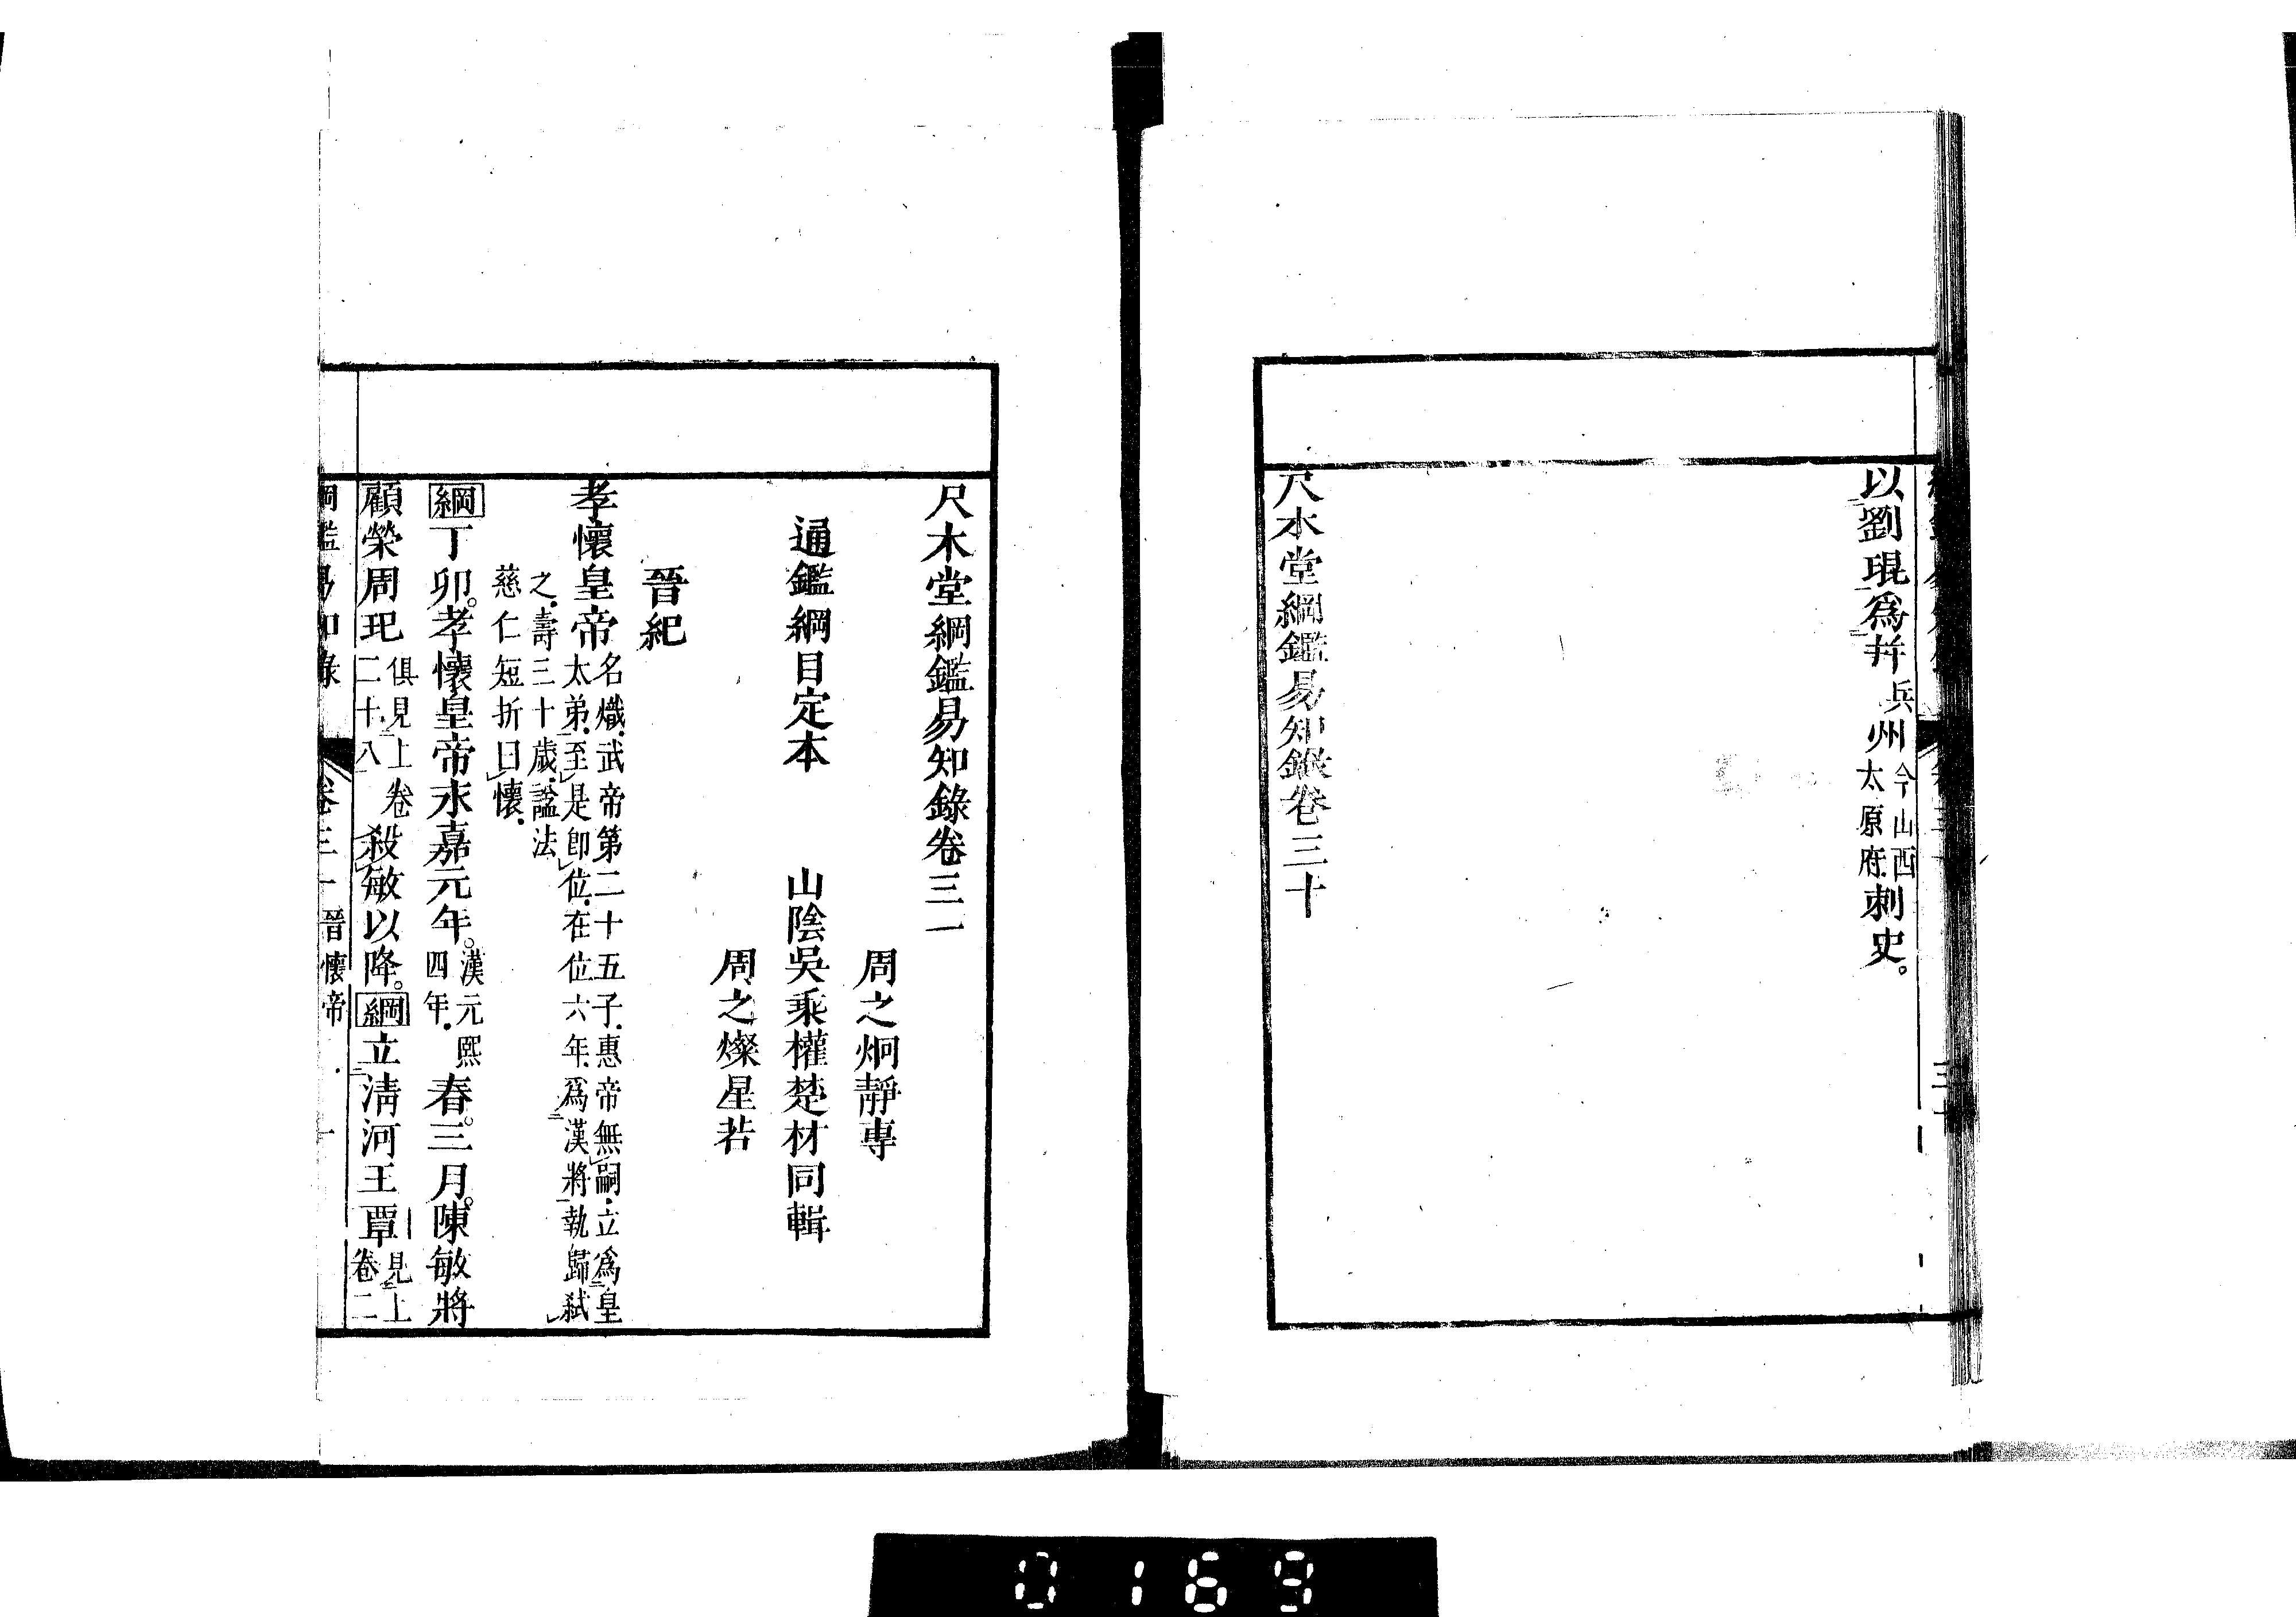 以劉琨爲幷兵州今山西太原府刺史。
尺木堂綱鑑易知錄卷三十
尺木堂綱鑑易知錄卷三一
周之炯靜專
通鑑綱目定本 山陰吳乘權楚材同輯
周之燦星若
晉紀
孝懷皇帝名熾武帝第二十五子惠帝無嗣立爲皇太弟至是卽位在位六年爲漢將執歸弑
之壽三十歲諡法慈仁短折曰懷
綱丁卯。孝懷皇帝永嘉元年。漢元熙四年春。三月。陳敏將
顧榮周玘俱見上卷二十八殺敏以降。綱立淸河王覃見上卷二
綱鑑易知錄 卷三一 晉懷帝 一
0169